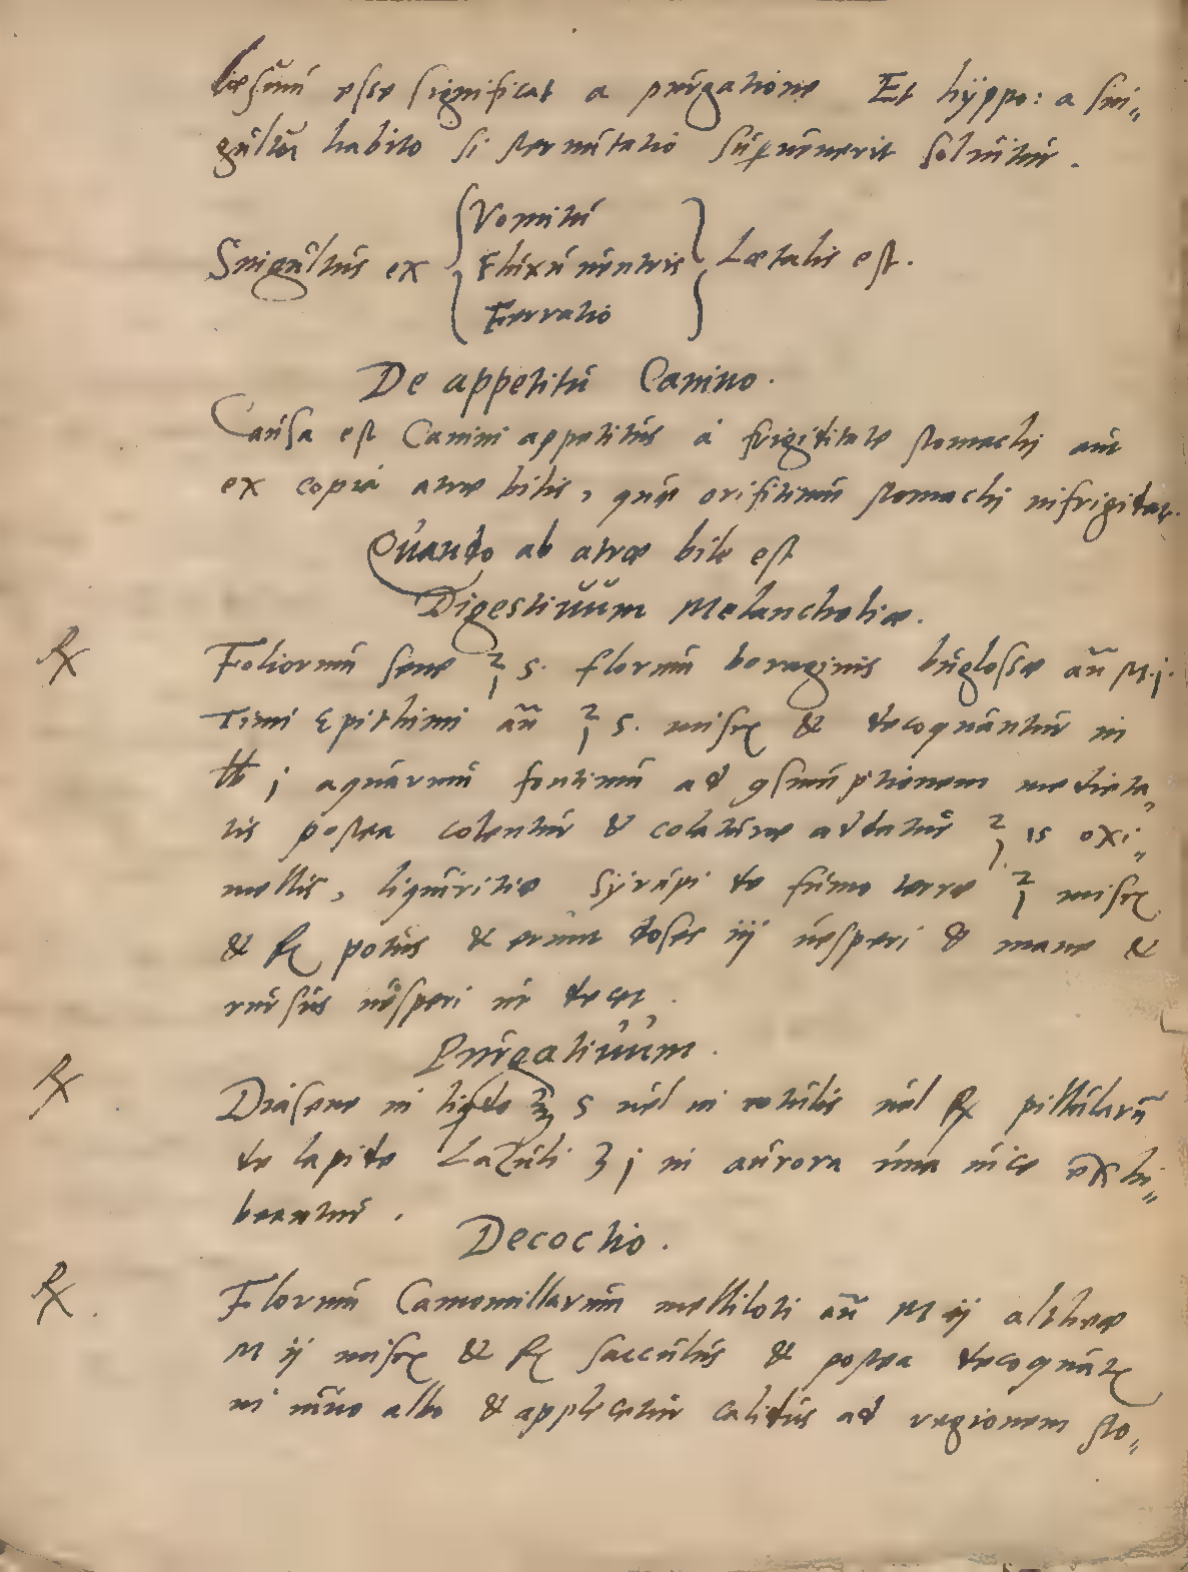 læsum esse significat a purgatione Et hÿppo: a sin„
gultu habito si sternutatio supuenerit soluitur.
Singultus ex { Vomitu
Fluxu uentris } Lætalis est.
Ferratio
De appetitu Canino.
Causa est Canini appetitus a frigiditate stomachi aut
ex copia atræ bilis, quæ orifitium stomachi infrigidat.
Quando ab atræ bile est
Digestiuum Melancholiæ.
℞ Foliorum sene ℥ s. florum boraginis buglossæ añ M.j.
Timi Epithimi añ ℥ s. misce & decoquantur in
℔ j aquarum fontium ad ꝯsumptionem medieta„
tis postea colentur & colaturæ addatur ℥ is oxi„
mellis, liquiritie sÿrupi de fumo terre ℥ misce
& fc potus & erunt doses iij uesperi & mane &
rursus uesperi ut decet.
Purgatiuum.
℞ Diasene in ℥ s uel in rotulis uel ℞ pillularũ
de lapide Lazuli ℈ j in aurora una uice exhi„
beantur.
Decoctio.
℞. Florum Camomillarum melliloti añ M ij altheæ
M ij misce & fc sacculus & postea decoquatur
in uino albo & applicetur calidus ad regionem sto„